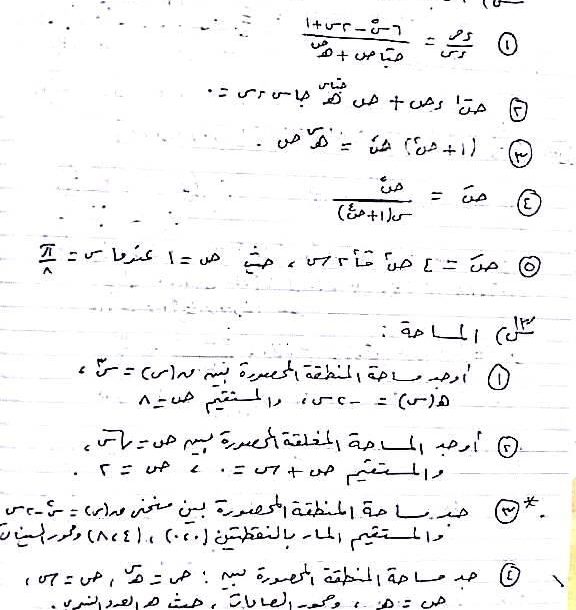 ① ءص/ءس = (٦س² − ٢س + ١)/(جتاص + هـ^ص)
② ءص + ص هـ^جتاس جاس ءس = ٠
③ (١ + ص²) صَ = هـ^س ص .
④ صَ = ص²/(س(١ + ص٤))
⑤ صَ = ٤ ص² قا² ٢س ، حيث ص = ١ عندما س = π/٨
س٣) المساحة :
① أوجد مساحة المنطقة المحصورة بين ق(س) = س٣ ،
هـ(س) = -٢س ، والمستقيم ص = ٨
② أوجد المساحة المغلقة المحصورة بين ص = √س ،
والمستقيم ص + س = ٠ ، ص = ٢ .
*③ جد مساحة المنطقة المحصورة بين منحنى ق(س) = س² - ٢س
والمستقيم المار بالنقطتين (٠،٠) ، (٨،٤) ومحور السينات
④ جد مساحة المنطقة المحصورة بين : ص = هـ^س ، ص = س ،
ص = هـ ، ومحور الصادات ، حيث هـ العدد النيبيري .